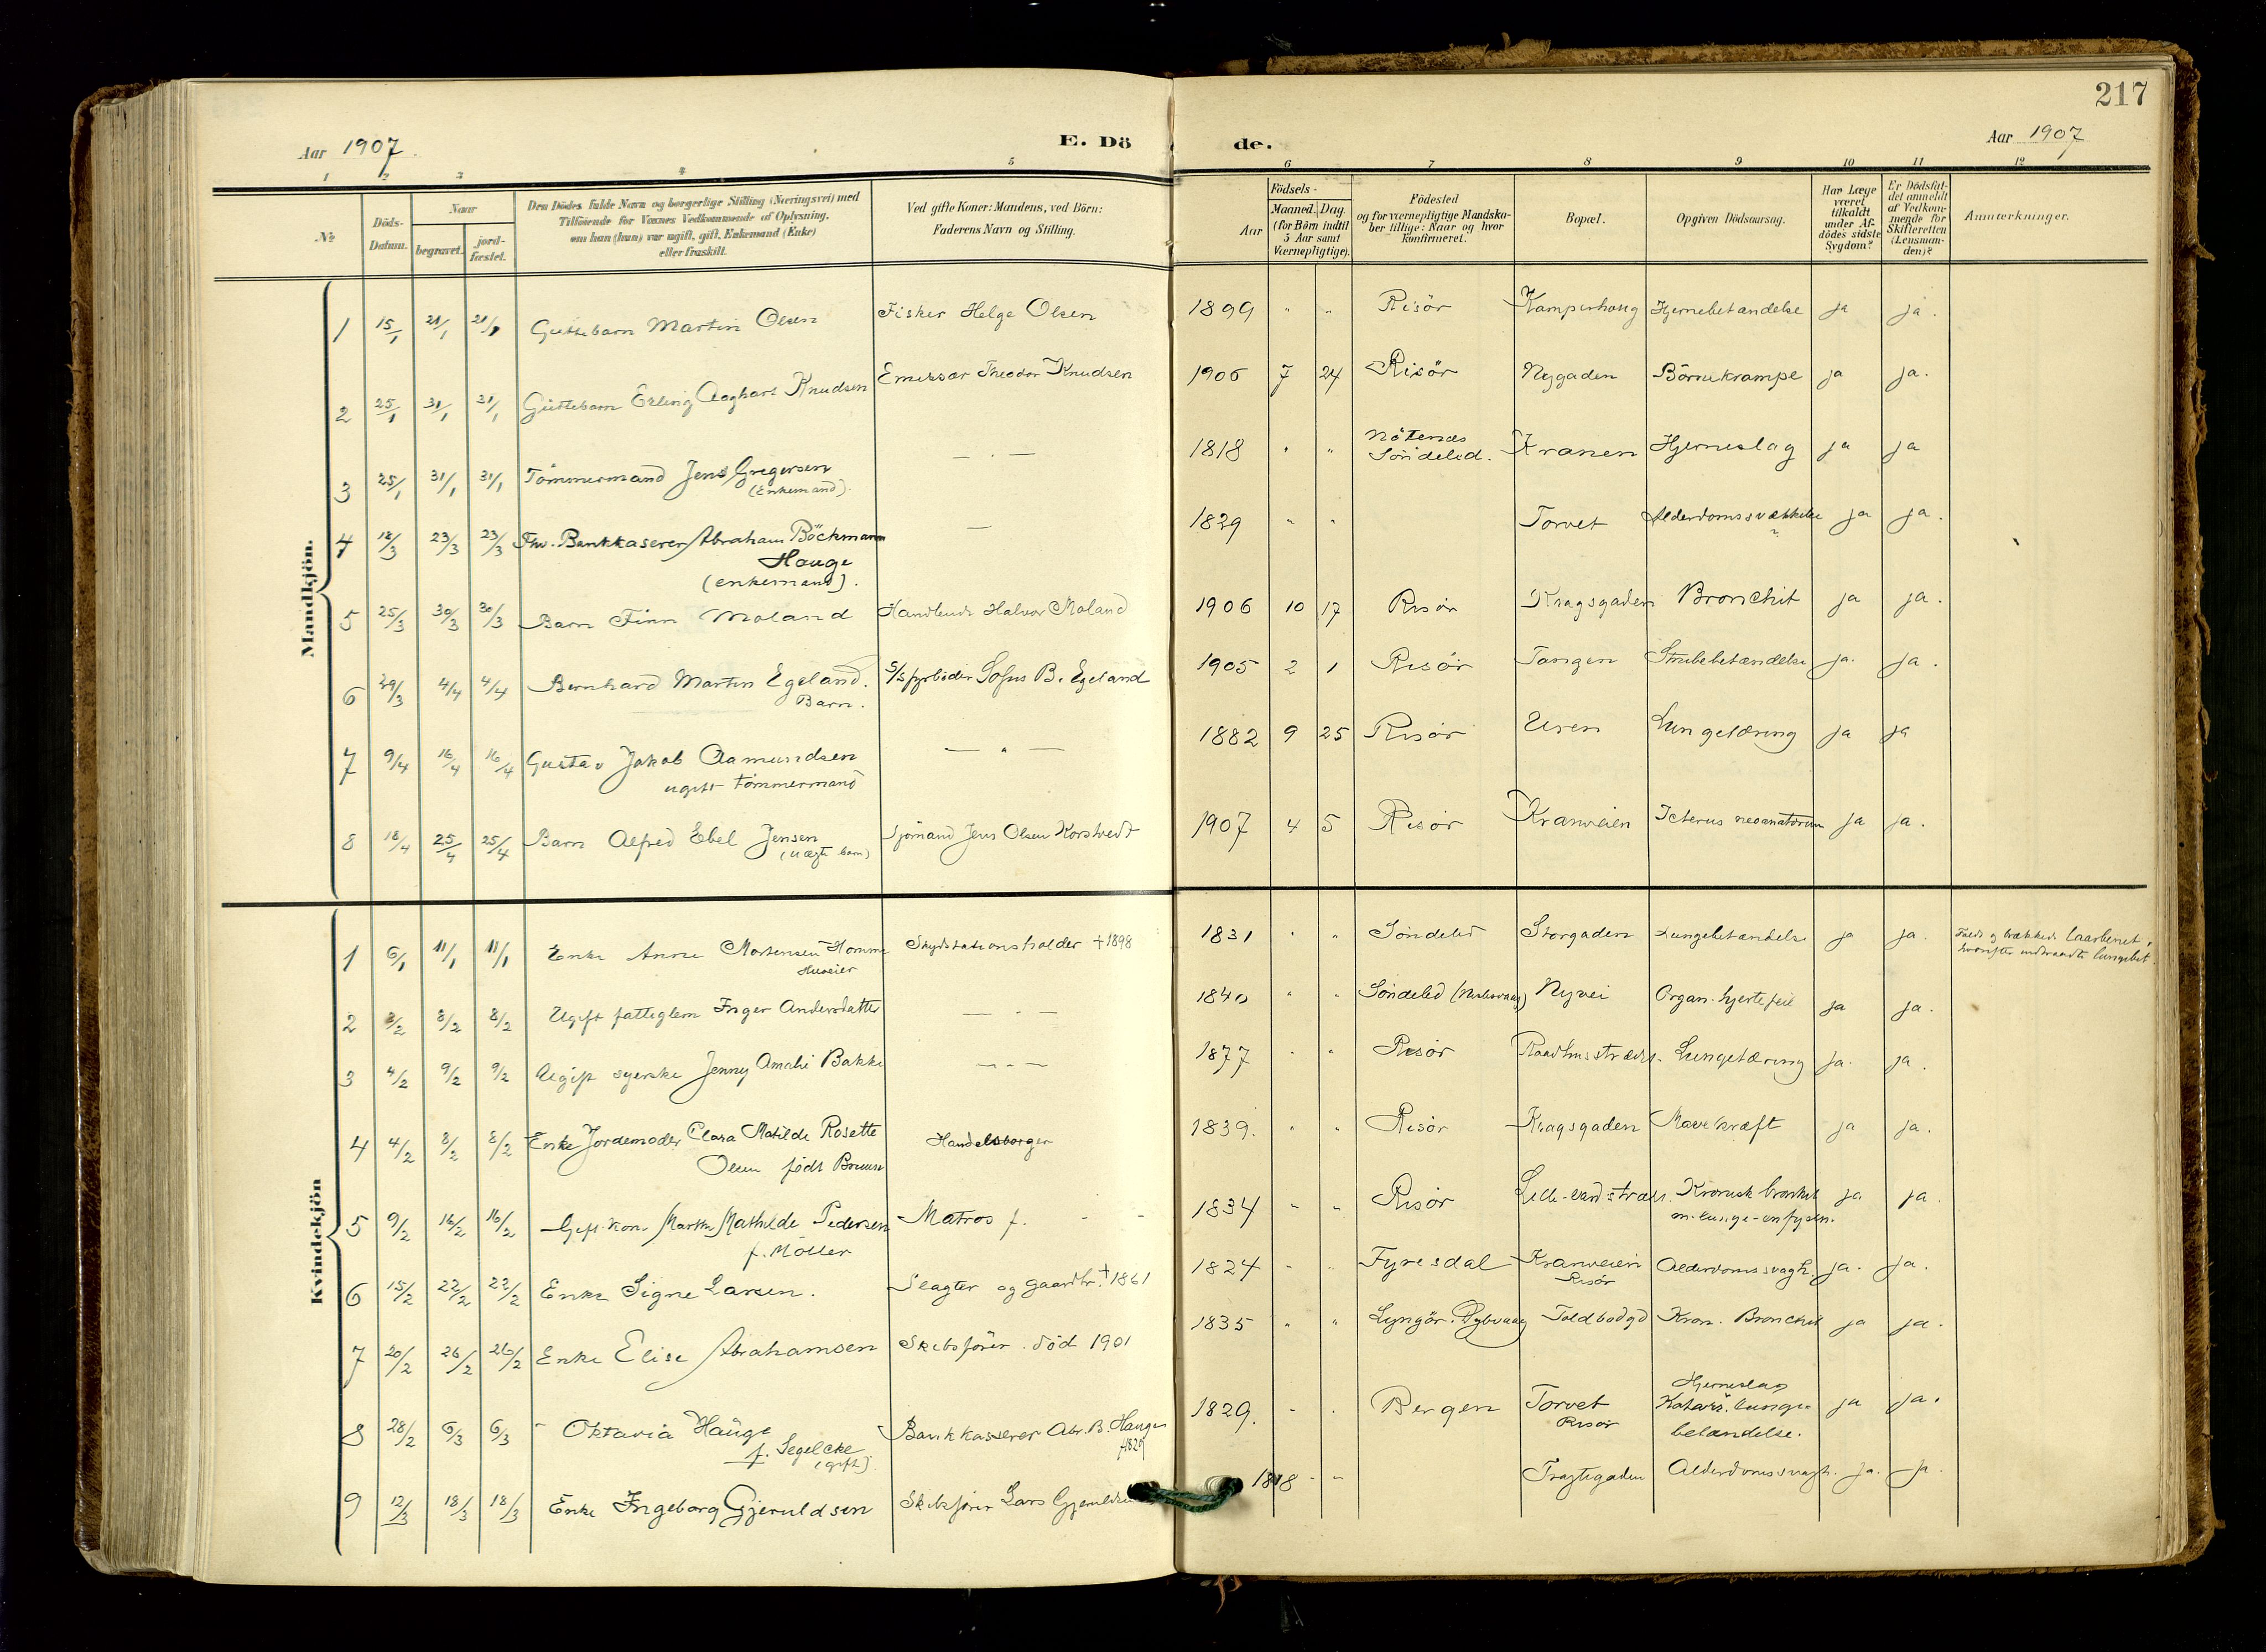 217
Aar 1907. E. Dö
de. Aar 1907
1 2 3 4 5 6 7 8 9 10 11 12
№
Döds-Datum.
Naar
begravet.
jord-fæstet.
Den Dödes fulde Navn og borgerlige Stilling (Næringsvei) med
Tilföiende for Voxnes Vedkommende af Oplysning,
om han (hun) var ugift, gift, Enkemand (Enke)
eller fraskilt.
Ved gifte Koner: Mandens, ved Börn:
Faderens Navn og Stilling.
Födsels-
Aar
Maaned. Dag.
(for Börn indtil
5 Aar samt
Værnepligtige).
Födested
og for værnepligtige Mandska-
ber tillige: Naar og hvor
konfirmeret.
Bopæl.
Opgiven Dödsaarsag.
Har Læge
været
tilkaldt
under Af-
dödes sidste
Sygdom?
Er Dödsfal-
det anmeldt
af Vedkom-
mende for
Skifteretten
(Lensman-
den)?
Anmærkninger.
Mandkjön.
1 15/1 21/1 21/1 Guttebarn Martin Olsen Fisker Helge Olsen 1899 " " Risör Kamperhoug Hjernebetændelse ja ja.
2 25/1 31/1 31/1 Guttebarn Erling Aaghart Knudsen Emissær Theodor Knudsen 1906 7 24 Risör Nygaden Börnekrampe ja ja.
3 25/1 31/1 31/1 Tömmermand Jens Gregersen
(Enkemand). — . — 1818 " " Nötenæs
Söndeled. Kranen Hjerneslag ja ja
4 18/3 23/3 23/3 Fhv. Bankkaserer Abraham Böckmann
Hauge
(enkemand). — 1829 " " Torvet Alderdomssvækkelse ja ja.
5 25/3 30/3 30/3 Barn Finn Moland Handlende Halvor Moland 1906 10 17 Risör Kragsgaden Bronchit ja ja.
6 29/3 4/4 4/4 Bernhard Martin Egeland.
Barn. S/S fyrböder Sofus B. Egeland 1905 2 1 Risör Tangen Strubebetændelse ja. ja.
7 9/4 16/4 16/4 Gustav Jakob Aamundsen
ugift tömmermand — " — 1882 9 25 Risör Uren Lungetæring ja ja
8 18/4 25/4 25/4 Barn Alfred Ebel Jensen
(uægte barn) Sjömand Jens Olsen Korstvedt 1907 4 5 Risör Kranveien Icterus neoanatorum ja ja.
Kvindekjön
1 6/1 11/1 11/1 Enke Anne Mortensen Homme
Huseier Skydsstationsholder + 1898 1831 " " Söndeled Storgaden Lungebetændelse ja ja Faldt og brækkede laarbenet,
hvorefter indtraadte lungebet.
2 3/2 8/2 8/2 Ugift fattiglem Inger Andersdatter — " — 1840 " " Söndeled Nyvei Organ. hjertefeil ja ja.
3 4/2 9/2 9/2 Ugift syerske Jenny Amalie Bakke — " — 1877 " " Risör Raadhusstrædet. Lungetæring ja. ja.
4 4/2 8/2 8/2 Enke Jordemoder Clara Matilde Rosette
Olsen födt Bruun Handelsborger 1839. " " Risör Kragsgaden Mavekræft ja ja.
5 9/2 16/2 16/2 Gift kone Marthe Mathilde Pedersen
f. Möller Matros f. - - 1834 " " Risör Kronisk bronkit
m. lunge-emfysem. ja ja
6 15/2 22/2 22/2 Enke Signe Larsen. Slagter og gaardbr. + 1861 1824 " " Fyresdal Kranveien
Risör Alderdomssvagh. ja. ja.
7 20/2 26/2 26/2 Enke Elise Abrahamsen Skibsförer. död 1901 1835 " " Lyngör. Dybvaag Toldbodgd Kron. Bronchit ja ja.
8 28/2 6/3 6/3 Oktavia Hauge
f. Segelcke
(gift). Bankkasserer Abr. B. Hauge
f 1829 1829. " " Bergen Torvet
Risör Hjerneslag
Katarr. lunge-
betændelse. ja ja.
9 12/3 18/3 18/3 Enke Ingeborg Gjeruldsen Skibsförer Lars Gjeruldsen 1818 " " Tragtegaden Alderdomssvagh. ja. ja.